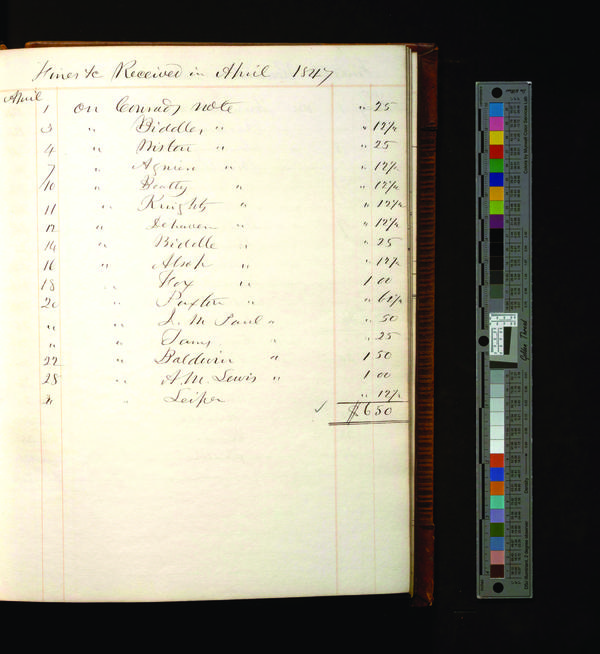 Fines &c Received in April 1847
April
1 on Conrads note " 25
3 " Biddles " " 12½
4 " Wistar " " 25
7 " Agnew " " 12½
10 " Beatty " " 12½
11 " Knights " " 12½
12 " Dehaven " " 12½
14 " Biddle " " 25
16 " Alsop " " 12½
18 " Fox " 1 00
20 " Paxton " " 62½
" " J. M. Paul " " 50
" " Sams " " 25
22 " Baldwin " 1 50
28 " A. M. Lewis " 1 00
" " Leiper " 12½
✓ $ 6 50
Golden Thread